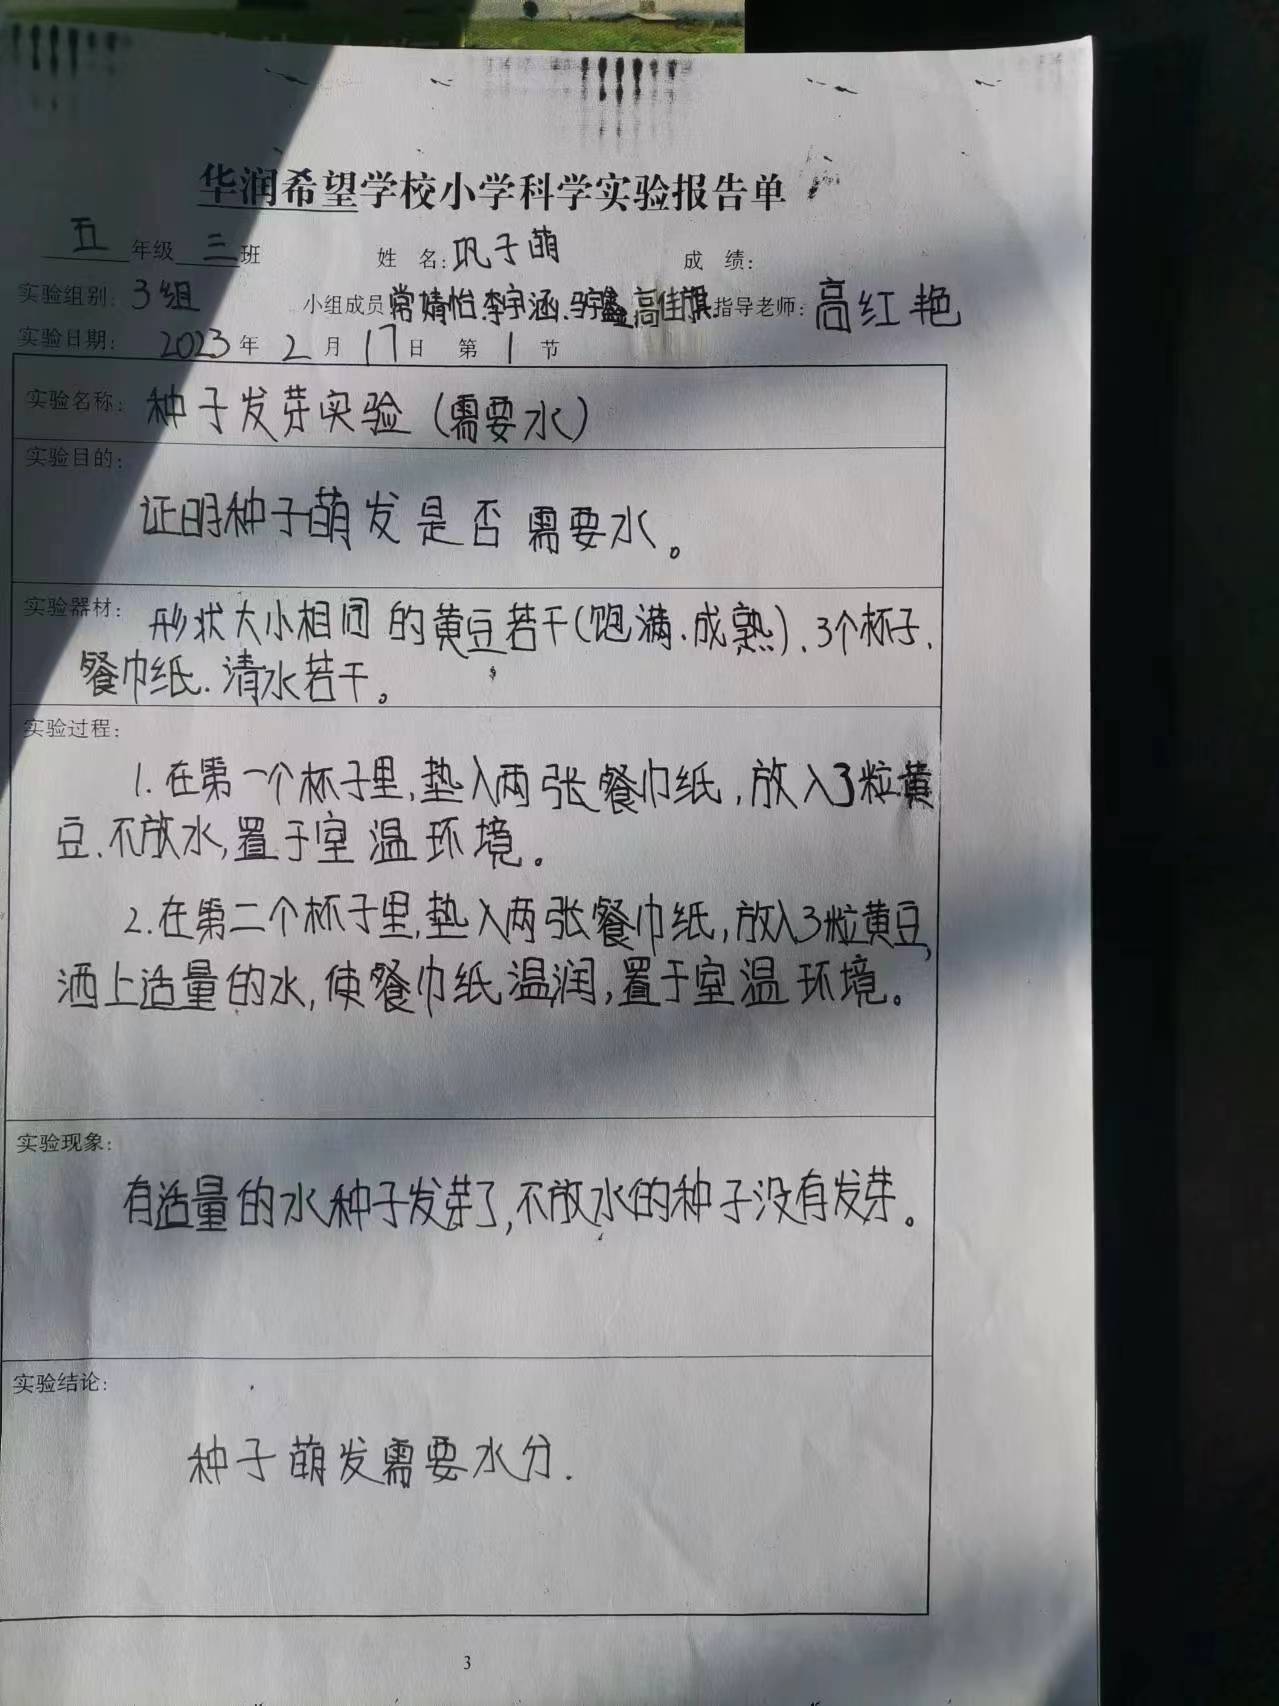 华润希望学校小学科学实验报告单
五年级三班 姓名:巩子萌 成绩:
实验组别:3组 小组成员常婧怡.李宇涵.马宇鑫.高佳旗.指导老师:高红艳
实验日期: 2023年2月17日 第1节
实验名称: 种子发芽实验(需要水)
实验目的:
证明种子萌发是否需要水。
实验器材: 形状大小相同的黄豆若干(饱满.成熟)、3个杯子.
餐巾纸.清水若干。
实验过程:
1.在第一个杯子里,垫入两张餐巾纸,放入3粒黄
豆.不放水,置于室温环境。
2.在第二个杯子里,垫入两张餐巾纸,放入3粒黄豆,
洒上适量的水,使餐巾纸温润,置于室温环境。
实验现象:
有适量的水种子发芽了,不放水的种子没有发芽。
实验结论:
种子萌发需要水分.
3